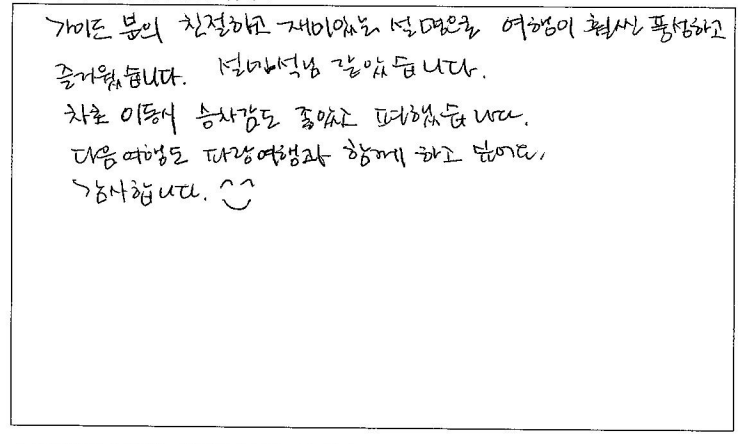 가이드 분의 친절하고 재미있는 설명으로 여행이 훨씬 풍성하고
즐거웠습니다. 설민석님 같았습니다.
차로 이동시 승차감도 좋았고 편했습니다.
다음 여행도 파랑여행과 함께 하고 싶어요.
감사합니다. ^^